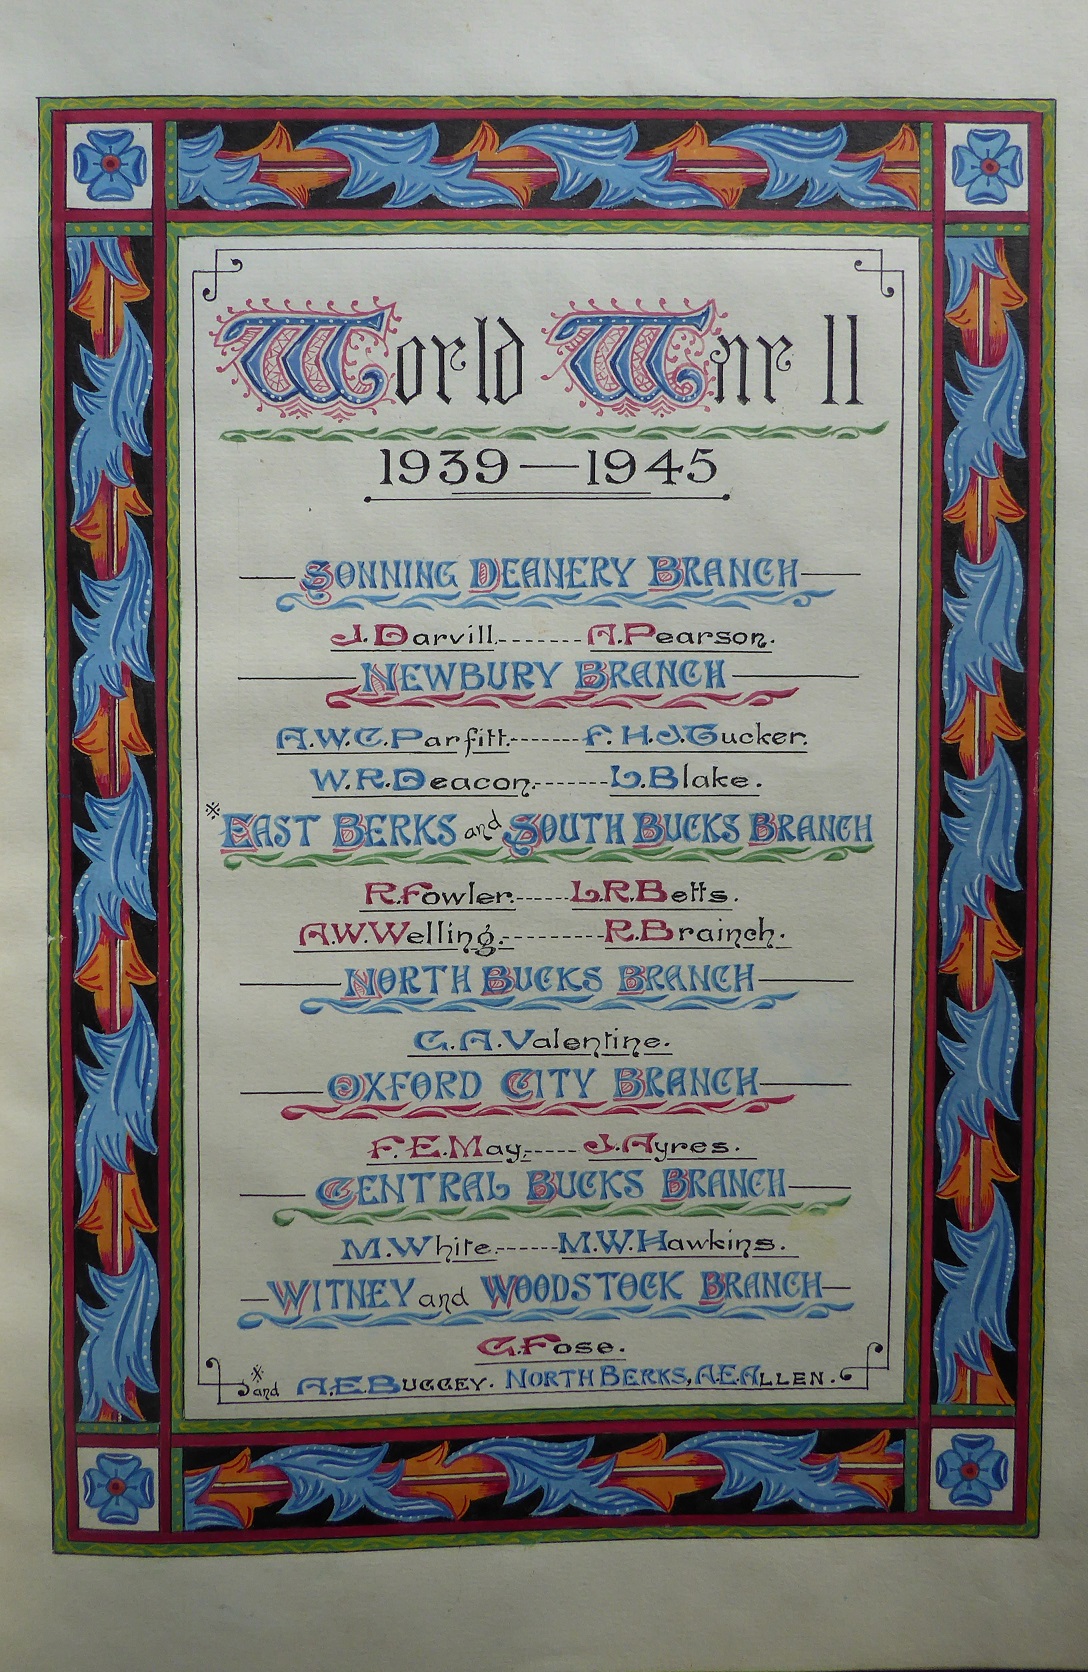 World War II
1939—1945
SONNING DEANERY BRANCH
J. Darvill.-------A. Pearson.
NEWBURY BRANCH
A.W.C. Parfitt.-------F. H. J. Tucker.
W. R. Deacon.------L. Blake.
※ EAST BERKS and SOUTH BUCKS BRANCH
R. Fowler.------L.R. Betts.
A.W. Welling.----------R. Brainch.
NORTH BUCKS BRANCH
G. A. Valentine.
OXFORD CITY BRANCH
F. E. May.-----J. Ayres.
CENTRAL BUCKS BRANCH
M. White.------M.W. Hawkins.
WITNEY and WOODSTOCK BRANCH
G. Fose.
※ and A.E. BUGGEY. NORTH BERKS, A.E. ALLEN.